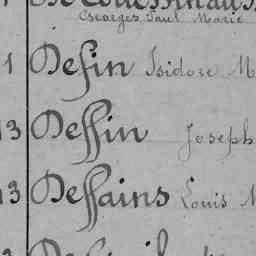 Georges Paul Marie
1 Defin Isidore M
13 Deffin Joseph
13 Deffains Louis M